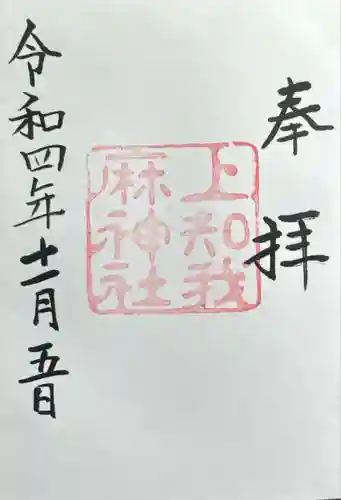 奉拝
上知我
麻神社
令和四年十一月五日